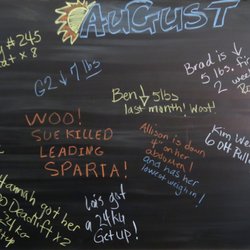 AUGUST
#245
x 8
G2 ↓ 7 lbs
Brad is
5 lbs.
2 week
Ben ↓ 5 lbs
last month! Woot!
WOO!
SUE KILLED
LEADING
SPARTA!
Allison is down
4" on her
abdomen!
and has her
lowest weigh in!
Kim We
6 off Pull
Hannah got her
Deadlift x2
Lois got
a 24kg
Get up!